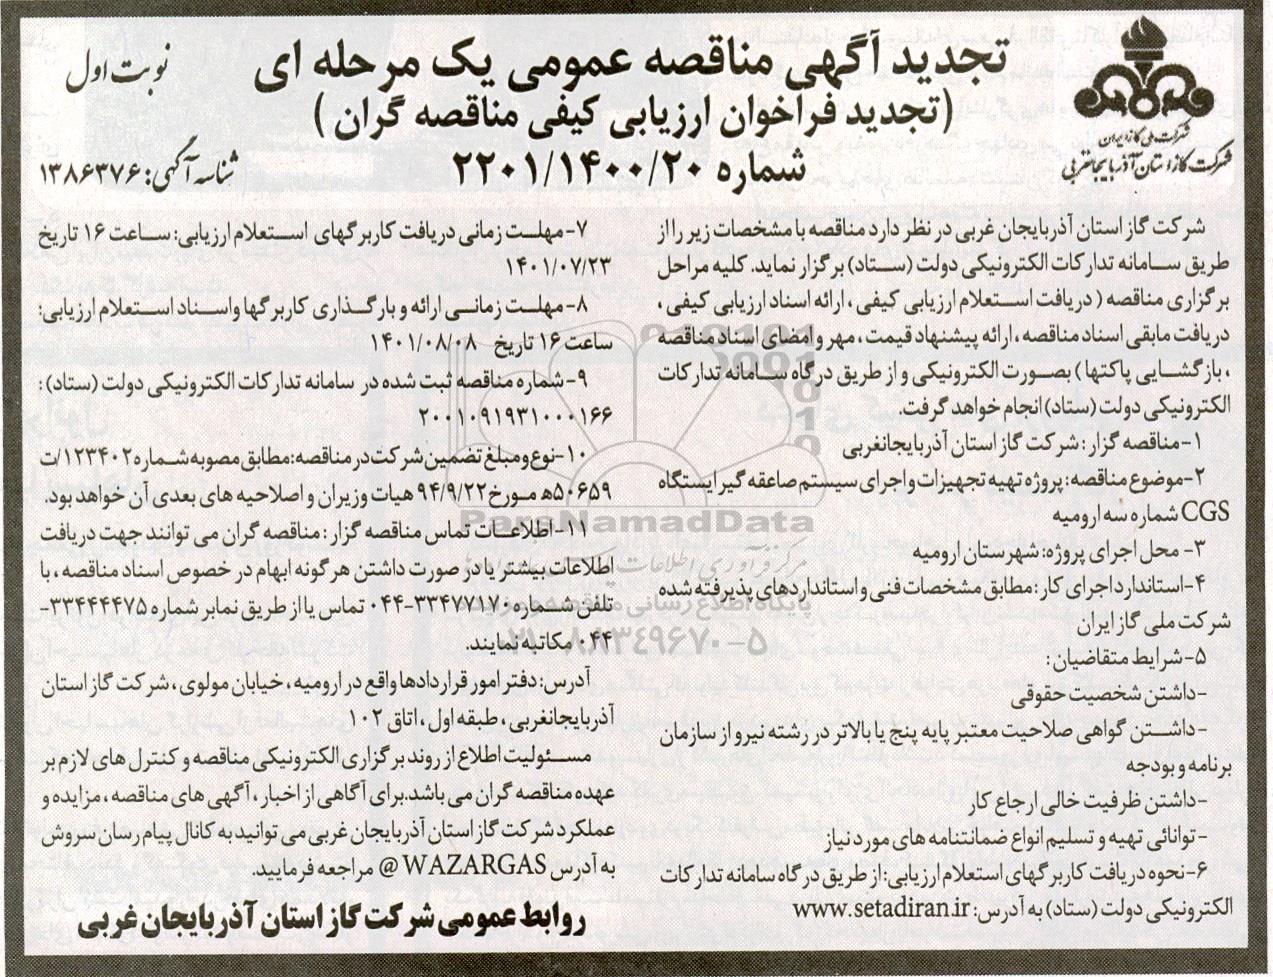 تجدید آگهی مناقصه عمومی یک مرحله ای
(تجدید فراخوان ارزیابی کیفی مناقصه گران )
شماره ۲۲۰۱/۱۴۰۰/۲۰
نوبت اول
شناسه آگهی: ۱۳۸۶۳۷۶
شرکت ملی گاز ایران
شرکت گاز استان آذربایجانغربی
شرکت گاز استان آذربایجان غربی در نظر دارد مناقصه با مشخصات زیر را از
طریق سامانه تدارکات الکترونیکی دولت (ستاد) برگزار نماید. کلیه مراحل
برگزاری مناقصه ( دریافت استعلام ارزیابی کیفی ، ارائه اسناد ارزیابی کیفی ،
دریافت مابقی اسناد مناقصه ، ارائه پیشنهاد قیمت ، مهر و امضای اسناد مناقصه
، بازگشایی پاکتها ) بصورت الکترونیکی و از طریق درگاه سامانه تدارکات
الکترونیکی دولت (ستاد) انجام خواهد گرفت.
۱-مناقصه گزار : شرکت گاز استان آذربایجانغربی
۲-موضوع مناقصه: پروژه تهیه تجهیزات و اجرای سیستم صاعقه گیر ایستگاه
CGS شماره سه ارومیه
۳- محل اجرای پروژه: شهرستان ارومیه
۴-استاندارد اجرای کار : مطابق مشخصات فنی و استانداردهای پذیرفته شده
شرکت ملی گاز ایران
۵-شرایط متقاضیان :
-داشتن شخصیت حقوقی
-داشتن گواهی صلاحیت معتبر پایه پنج یا بالاتر در رشته نیرو از سازمان
برنامه و بودجه
-داشتن ظرفیت خالی ارجاع کار
-توانائی تهیه و تسلیم انواع ضمانتنامه های مورد نیاز
۶-نحوه دریافت کاربرگهای استعلام ارزیابی: از طریق درگاه سامانه تدارکات
الکترونیکی دولت (ستاد) به آدرس: www.setadiran.ir
۷-مهلت زمانی دریافت کاربرگهای استعلام ارزیابی: ساعت ۱۶ تاریخ
۱۴۰۱/۰۷/۲۳
۸-مهلت زمانی ارائه و بارگذاری کاربرگها واسناد استعلام ارزیابی:
ساعت ۱۶ تاریخ ۱۴۰۱/۰۸/۰۸
۹-شماره مناقصه ثبت شده در سامانه تدارکات الکترونیکی دولت (ستاد) :
۲۰۰۱۰۹۱۹۳۱۰۰۰۱۶۶
۱۰-نوع و مبلغ تضمین شرکت در مناقصه: مطابق مصوبه شماره ۱۲۳۴۰۲/ت
۵۰۶۵۹ه مورخ ۹۴/۹/۲۲ هیات وزیران و اصلاحیه های بعدی آن خواهد بود.
۱۱-اطلاعات تماس مناقصه گزار : مناقصه گران می توانند جهت دریافت
اطلاعات بیشتر یا در صورت داشتن هرگونه ابهام در خصوص اسناد مناقصه ، با
تلفن شماره ۳۳۴۷۷۱۷۰-۰۴۴ تماس یا از طریق نمابر شماره ۳۳۴۴۴۴۷۵-
۰۴۴ مکاتبه نمایند.
آدرس: دفتر امور قراردادها واقع در ارومیه ، خیابان مولوی ، شرکت گاز استان
آذربایجانغربی ، طبقه اول ، اتاق ۱۰۲
مسئولیت اطلاع از روند برگزاری الکترونیکی مناقصه و کنترل های لازم بر
عهده مناقصه گران می باشد. برای آگاهی از اخبار ، آگهی های مناقصه ، مزایده و
عملکرد شرکت گاز استان آذربایجان غربی می توانید به کانال پیام رسان سروش
به آدرس WAZARGAS @ مراجعه فرمایید.
روابط عمومی شرکت گاز استان آذربایجان غربی
ParsNamadData
پایگاه اطلاع رسانی مناقصه و مزایده
۰۲۱-۸۸۳۴۹۶۷۰-۵